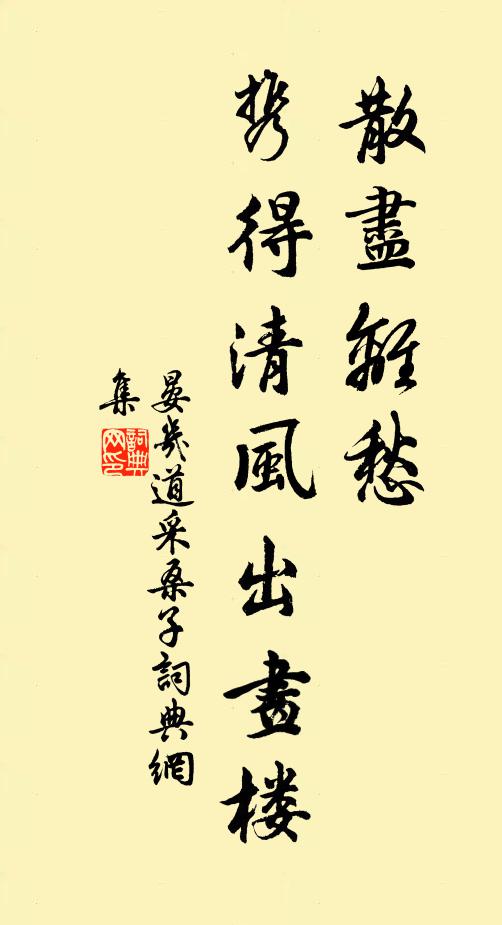 散盡離愁
携得清風出畫楼
晏幾道采桑子詞典網
集
詞典
网印